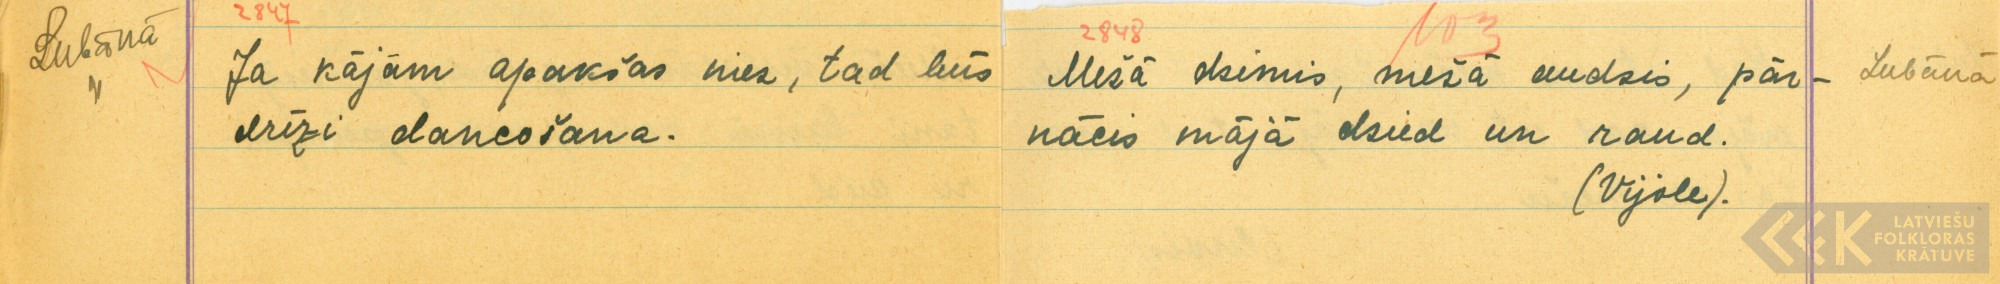 Lubānā
"
2847
Ja kājām apakšas niez, tad būs
drīzi dancošana.
2848
103
Mežā dzimis, mežā audzis, pār-
nācis mājā dzied un raud.
(Vijole).
Lubānā
LATVIEŠU
FOLKLORAS
KRĀTUVE